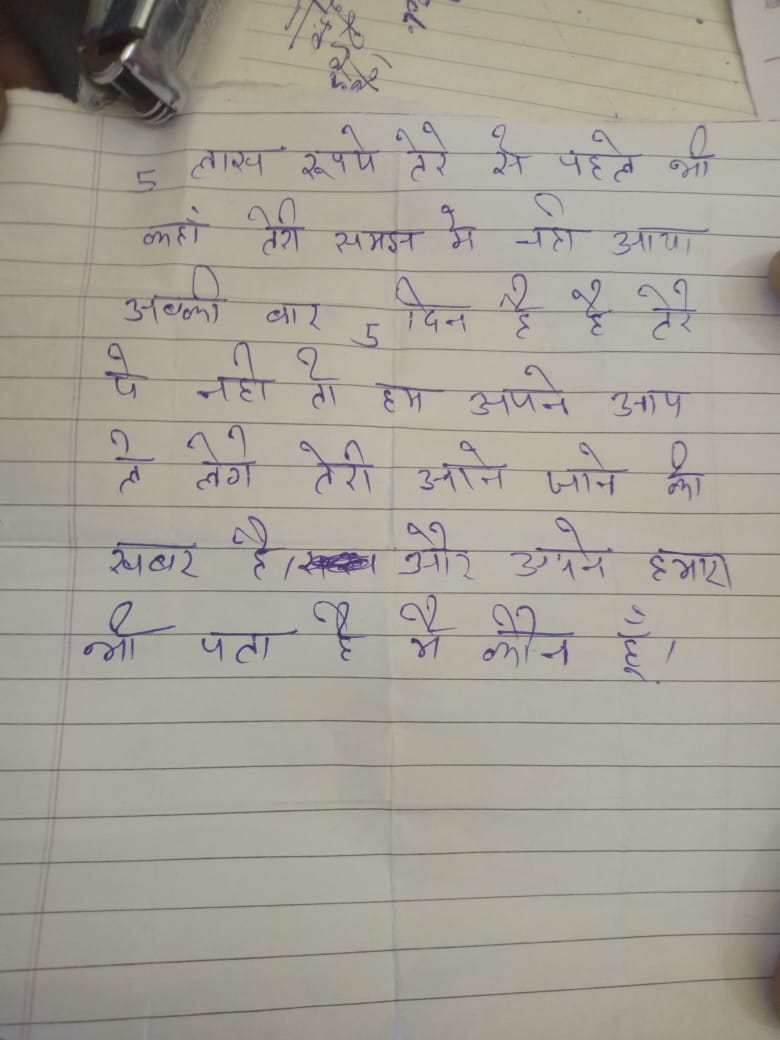 5 लाख रूपये तेरे से पहले भी
कहां तेरी समझ मे नही आया
अबकी बार 5 दिन है है तेरे
पे नही तो हम अपने आप
ले लेगे तेरी आने जाने की
खबर है। और अपने हमारा
भी पता है मै कौन हूँ।